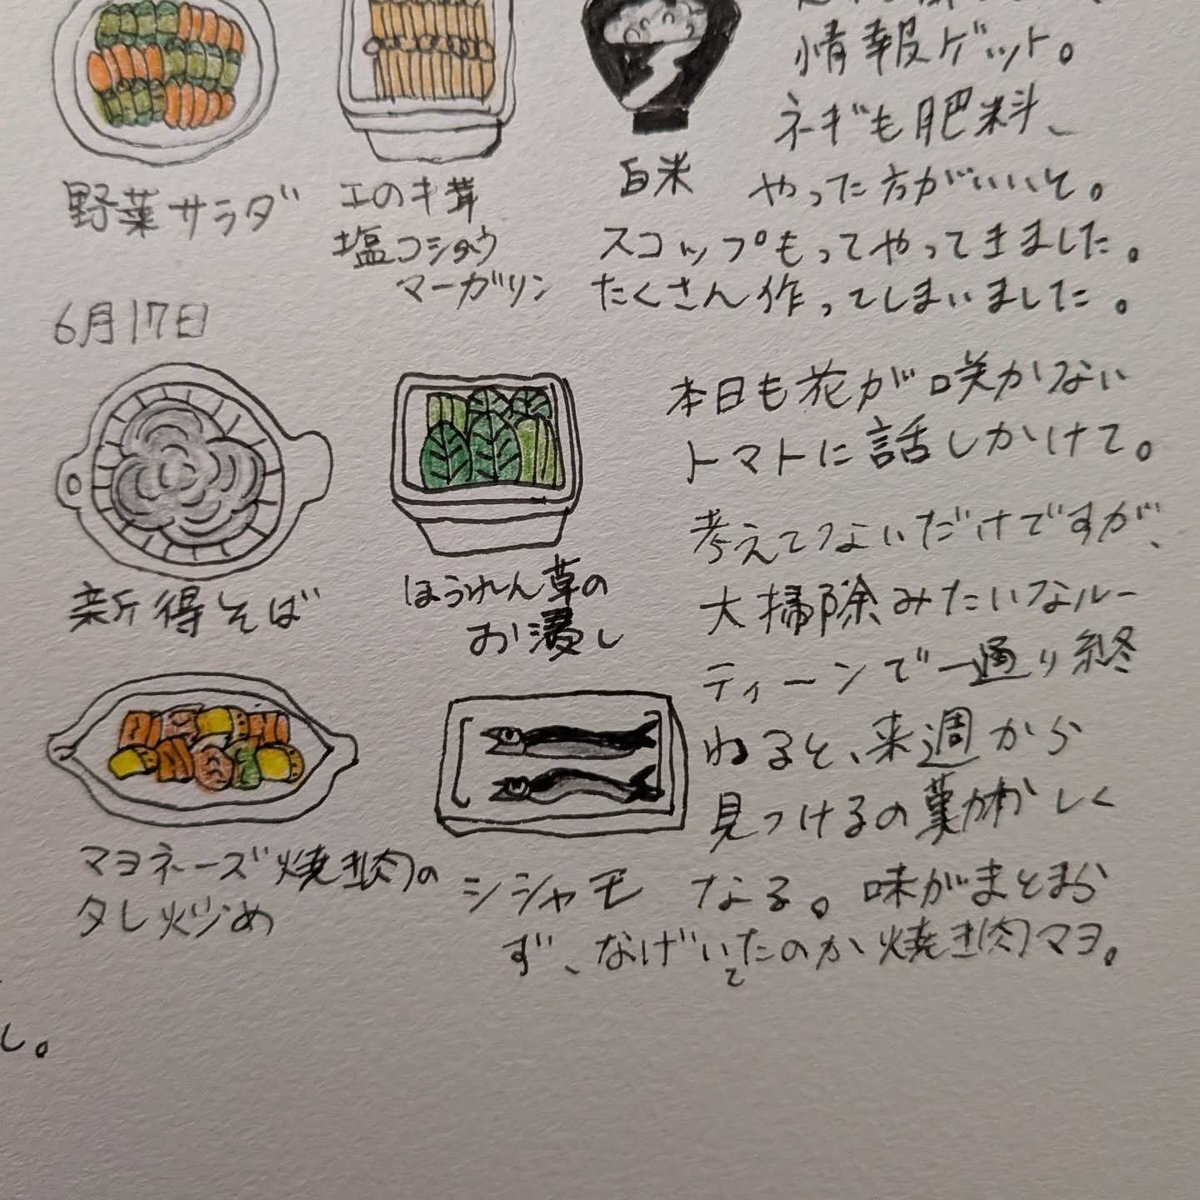 情報ゲット。
ネギも肥料、
やった方がいいと。
スコップもってやってきました。
たくさん作ってしまいました。
野菜サラダ
エのキ茸
塩コショウ
マーガリン
白米
6月17日
本日も花が咲かない
トマトに話しかけて。
考えてないだけですが、
大掃除みたいなルー
ティーンで一通り終
わると、来週から
見つけるの
しく
なる。味がまとまら
ず、なげいてたのか焼き肉マヨ。
新得そば
ほうれん草の
お浸し
マヨネーズ焼き肉の
タレ炒め
シシャモ
し。